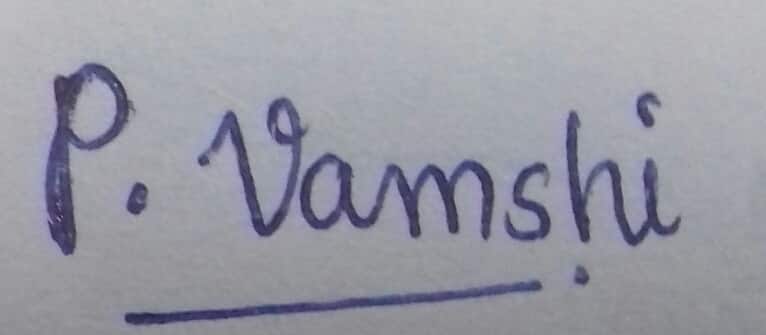 P. Vamshi